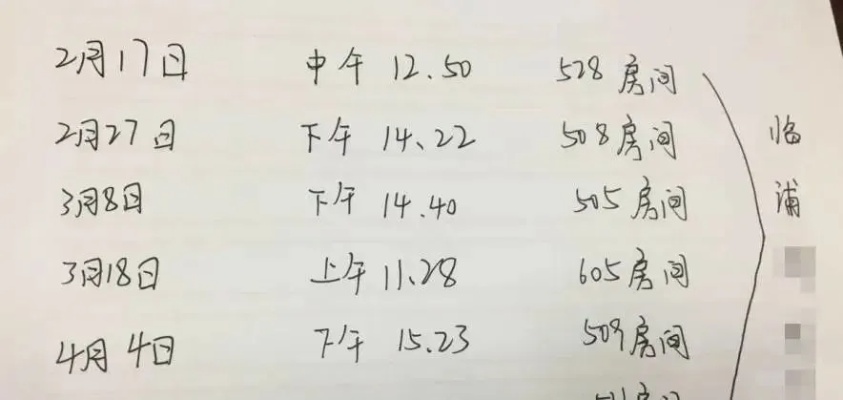 2月17日 中午 12.50 528 房间
2月27日 下午 14.22 508房间
3月8日 下午 14.40 505房间
3月18日 上午11.28 605房间
4月4日 下午 15.23 509房间
房间
临浦